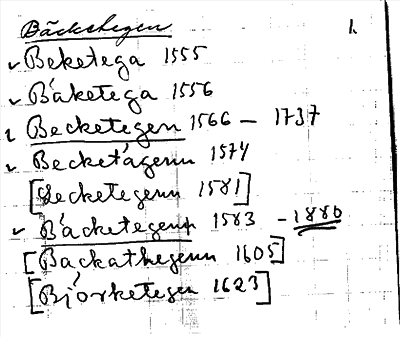 Bäckshegen 1.
Beketega 1555
Båketega 1556
Becketegen 1566 – 1737
Becketägenn 1574
[Lecketegenn 1581]
Bäcketegenn 1583 – 1880
[Backathegenn 1605]
[Björketegen 1623]